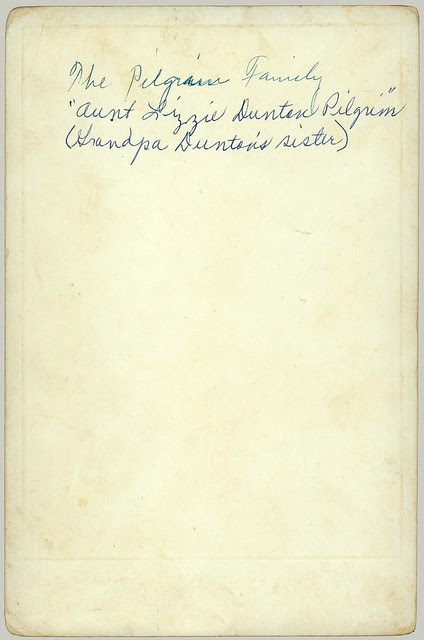 The Pilgrim Family
"Aunt Lizzie Dunton Pilgrim"
(Grandpa Dunton's sister)